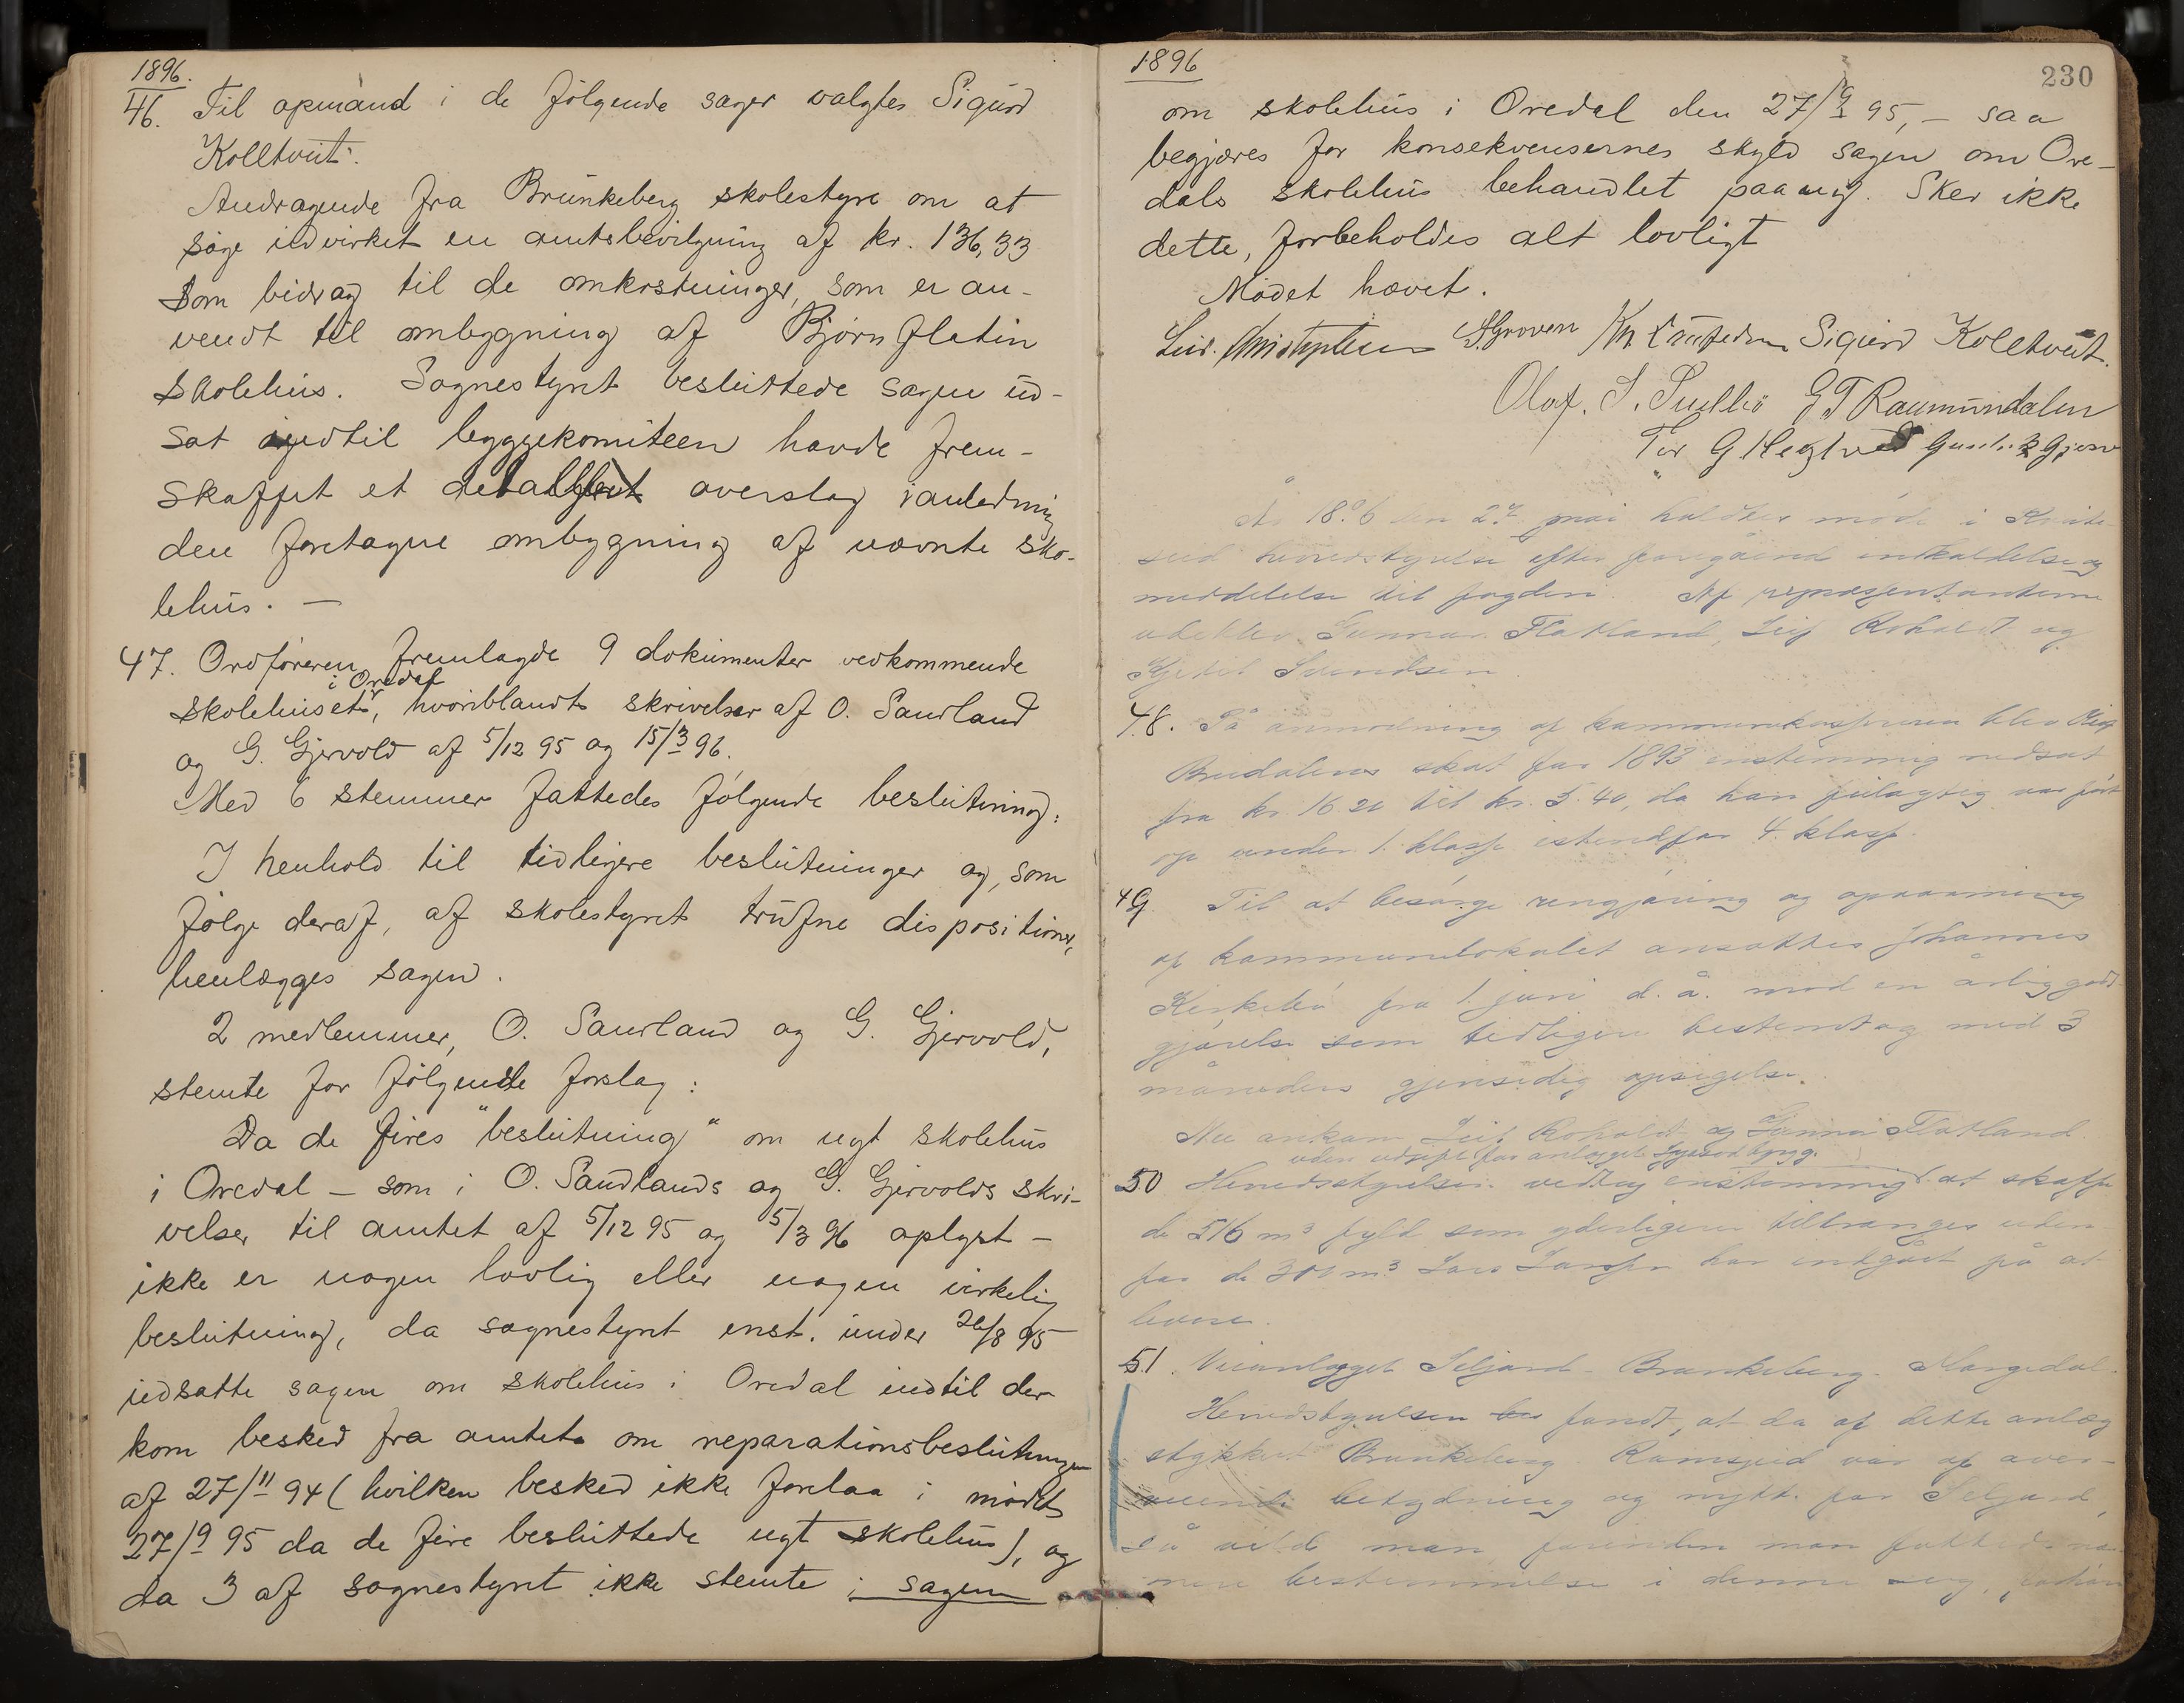 1896.
46. Til opmand i de følgende sager valgtes Sigurd
Kolltveit.
Andragende fra Brunkeberg skolestyre om at
søge udvirket en amtsbevilgning af kr. 136,33
som bidrag til de omkostninger, som er an-
vendt til ombygning af Bjørnflatin
skolehus. Sognestyret besluttede sagen ud-
sat indtil byggekomiteen havde frem-
skaffet et overslag i anledning
den foretagne ombygning af nævnte sko-
lehus. —
47. Ordføreren fremlagde 9 dokumenter vedkommende
i Oredal
skolehuset, hvoriblandt skrivelser af O. Saurland
og G. Gjervold af 5/12 95 og 15/3 96.
Med 6 stemmer fattedes følgende beslutning:
I henhold til tidligere beslutninger og, som
følge deraf, af skolestyret trufne dispositioner,
henlægges sagen.
2 medlemmer, O. Saurland og G. Gjervold,
stemte for følgende forslag:
Da de fires "beslutning" om nyt skolehus
i Oredal — som i O. Saurlands og G. Gjervolds skri-
velser til amtet af 5/12 95 og 5/3 96 oplyst —
ikke er nogen lovlig eller nogen virkelig
beslutning, da sognestyret enst. under 26/8 95
udsatte sagen om skolehus i Oredal indtil der
kom besked fra amtet om reparationsbeslutningen
af 27/11 94 (hvilken besked ikke forelaa i mødet
27/9 95 da de fire besluttede nyt skolehus), og
da 3 af sognestyret ikke stemte i sagen
1896
230
om skolehus i Oredal den 27/9 95, — saa
begjæres for konsekvensernes skyld sagen om Ore-
dals skolehus behandlet paany. Sker ikke
dette, forbeholdes alt lovligt
Mødet hævet.
Groven Sigurd Kolltveit.
Olaf. S. G T Raumundalen
Tor G Hegtveit
År 1896 den 27 mai holdtes møde i Kvite-
seid herredsstyrelse efter foregående indkaldelse og
meddelelse til fogden. Af repræsentanterne
udeblev Gunnar Flatland, Leif Roholdt og
Kjetil Svendsen.
48. På anmodning af kommunekassereren blev
skat for 1893 enstemmig nedsat
fra kr. 16 20 til kr. 5.40, da han feilagtig var ført
op under 1. klasse istedetfor 4. klasse.
49. Til at besørge rengjøring og opvarming
af kommunelokalet ansattes Johannes
Kirkebø fra 1. juni d. å. mod en årlig godt-
gjørelse som tidligere bestemt og med 3
måneders gjensidig opsigelse.
Nu ankom Leif Roholdt og Gunnar Flatland.
50 Herredsstyrelsen vedtog enstemmig at skaffe
de 516 m³ fyld som yderligere tiltrænges uden
for de 300 m³ Lars Larsen har indgået på at
levere.
51. Veianlægget Seljord - Brunkeberg - Morgedal.
Herredsstyrelsen fandt, at da af dette anlæg
stykket Brunkeberg - var af over-
veiende betydning og nytte for Seljord,
så vilde man, forinden man fattede no-
gen bestemmelse i denne sag,